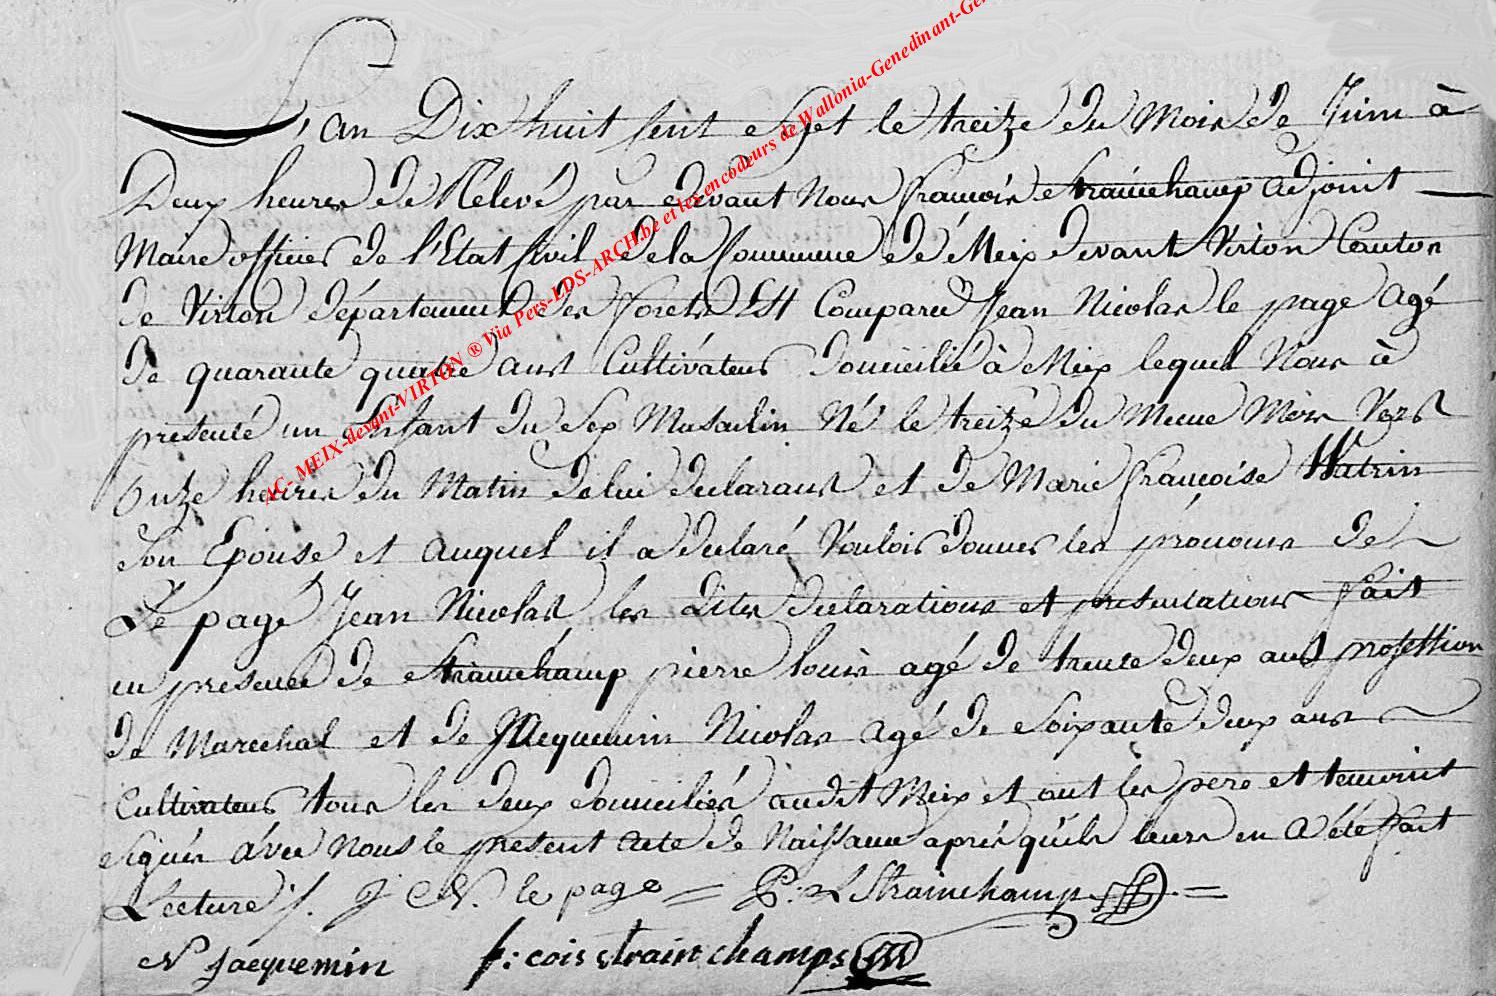 L'an Dix huit Cent Sept le treize du Mois de Juin à
Deux heures de Relevé par devant Nous François Strainchamp adjoint
Maire officier de l'Etat Civil de la Commune de Meix devant Virton Canton
de Virton département des Forets Est Comparu Jean Nicolas le page Agé
de quarante quatre ans Cultivateur domicilié à Meix lequel Nous à
presenté un Enfant du Sex Masculin Né le treize du Meme Mois Vers
Onze heures du Matin de lui declarant et de Marie françoise Watrin
Son Epouse et auquel il a declaré Vouloir donner les prénoms de
Le page Jean Nicolas les dites declarations et presentations fait
en presence de Strainchamp pierre louis agé de trente deux ans profession
de Marechal et de JAcquemin Nicolas agé de Soixante deux ans
Cultivateur tous les deux domiciliés audit Meix et ont les pere et temoint
Signés avec Nous le present acte de Naissance aprés qu'ils leurs en A été fait
Lecture /. J N. le page = P: L Strainchamp =
N Jacquemin f: cois strainchamps
AC- MEIX-devant-VIRTON ® Via Pers-LDS-ARCH.be et les encodeurs de Wallonia-Genedinant-Gen